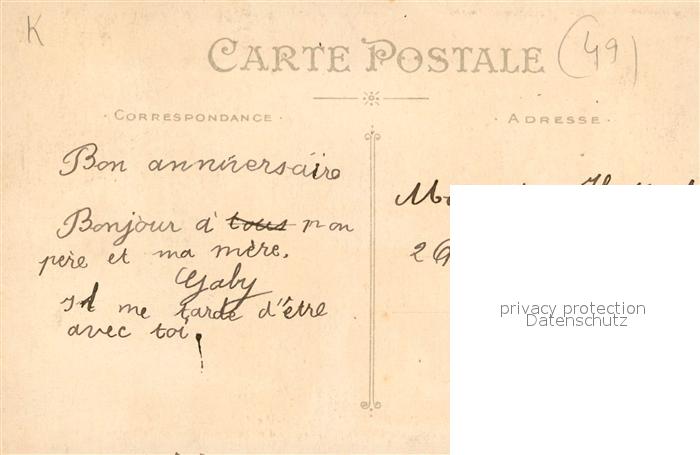 K
CARTE POSTALE (49)
· CORRESPONDANCE ·
· ADRESSE ·
Bon anniversaire
Bonjour à ~~tous~~ mon
père et ma mère.
Gaby
Il me tarde d'être
avec toi !
privacy protection
Datenschutz